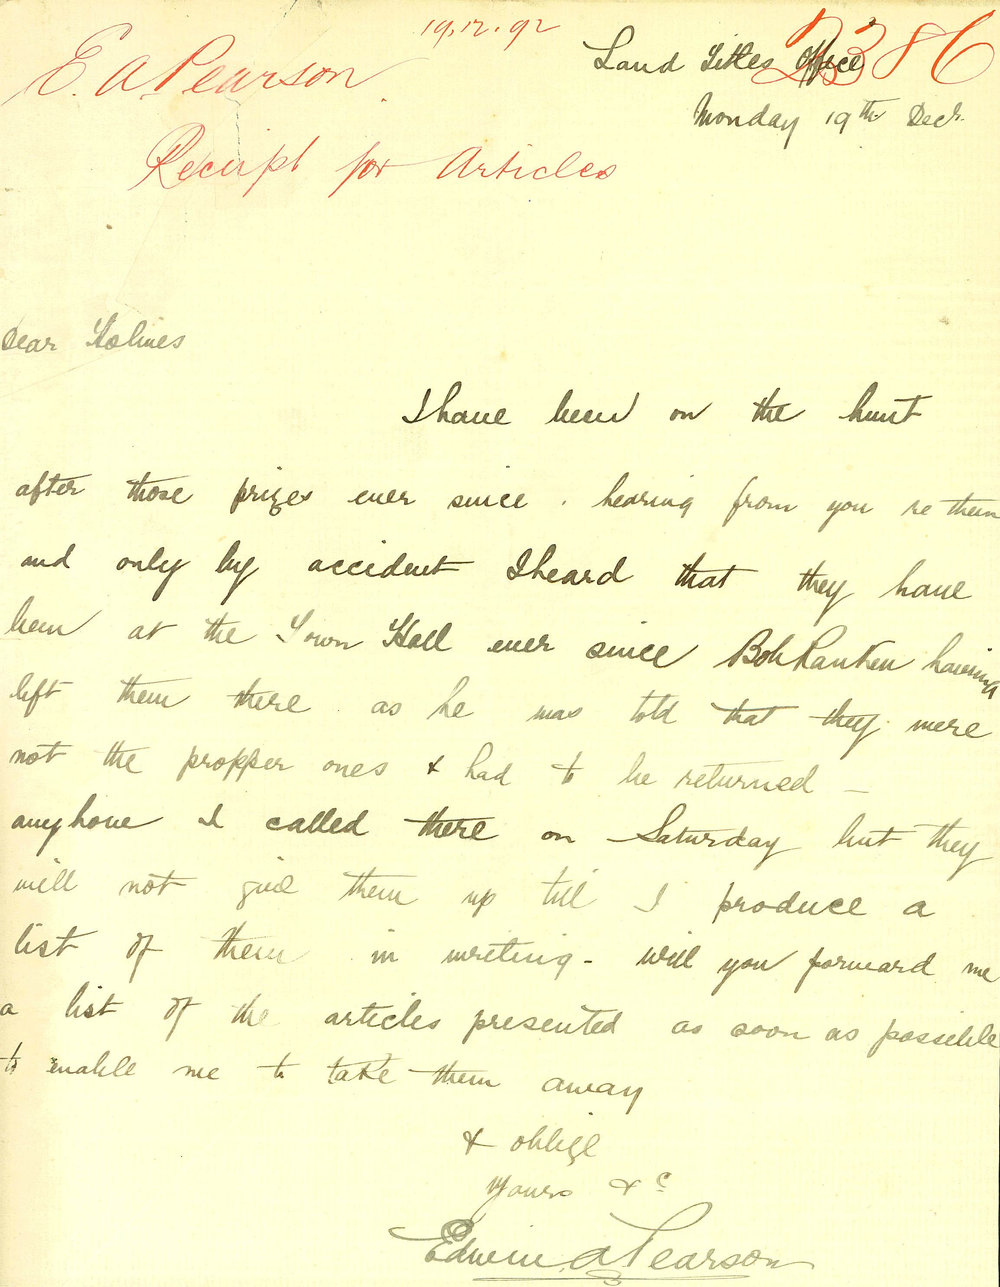 19.12.92
E. A Pearson
386
Receipt for Articles
Land Titles Office
Monday 19th Decr.
Dear Holmes
I have been on the hunt
after those prizes ever since . hearing from you re them
and only by accident I heard that they have
been at the Town Hall ever since Bob Ranken having
left them there . as he was told that they were
not the propper ones & had to be returned —
anyhow I called there on Saturday but they
will not give them up till I produce a
list of them in writing - will you forward me
a list of the articles presented as soon as possible
to enable me to take them away
& oblige
Yours &c
Edwin A Pearson